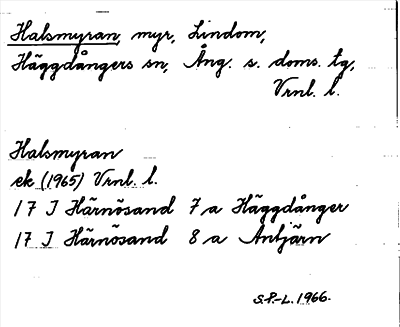 Halsmyran, myr, Lindom,
Häggdångers sn, Ång. s. doms. tg,
Vrnl. l.
Halsmyran
ek (1965) Vrnl. l.
17 J Härnösand 7 a Häggdånger
17 J Härnösand 8 a Antjärn
S.P.-L. 1966.